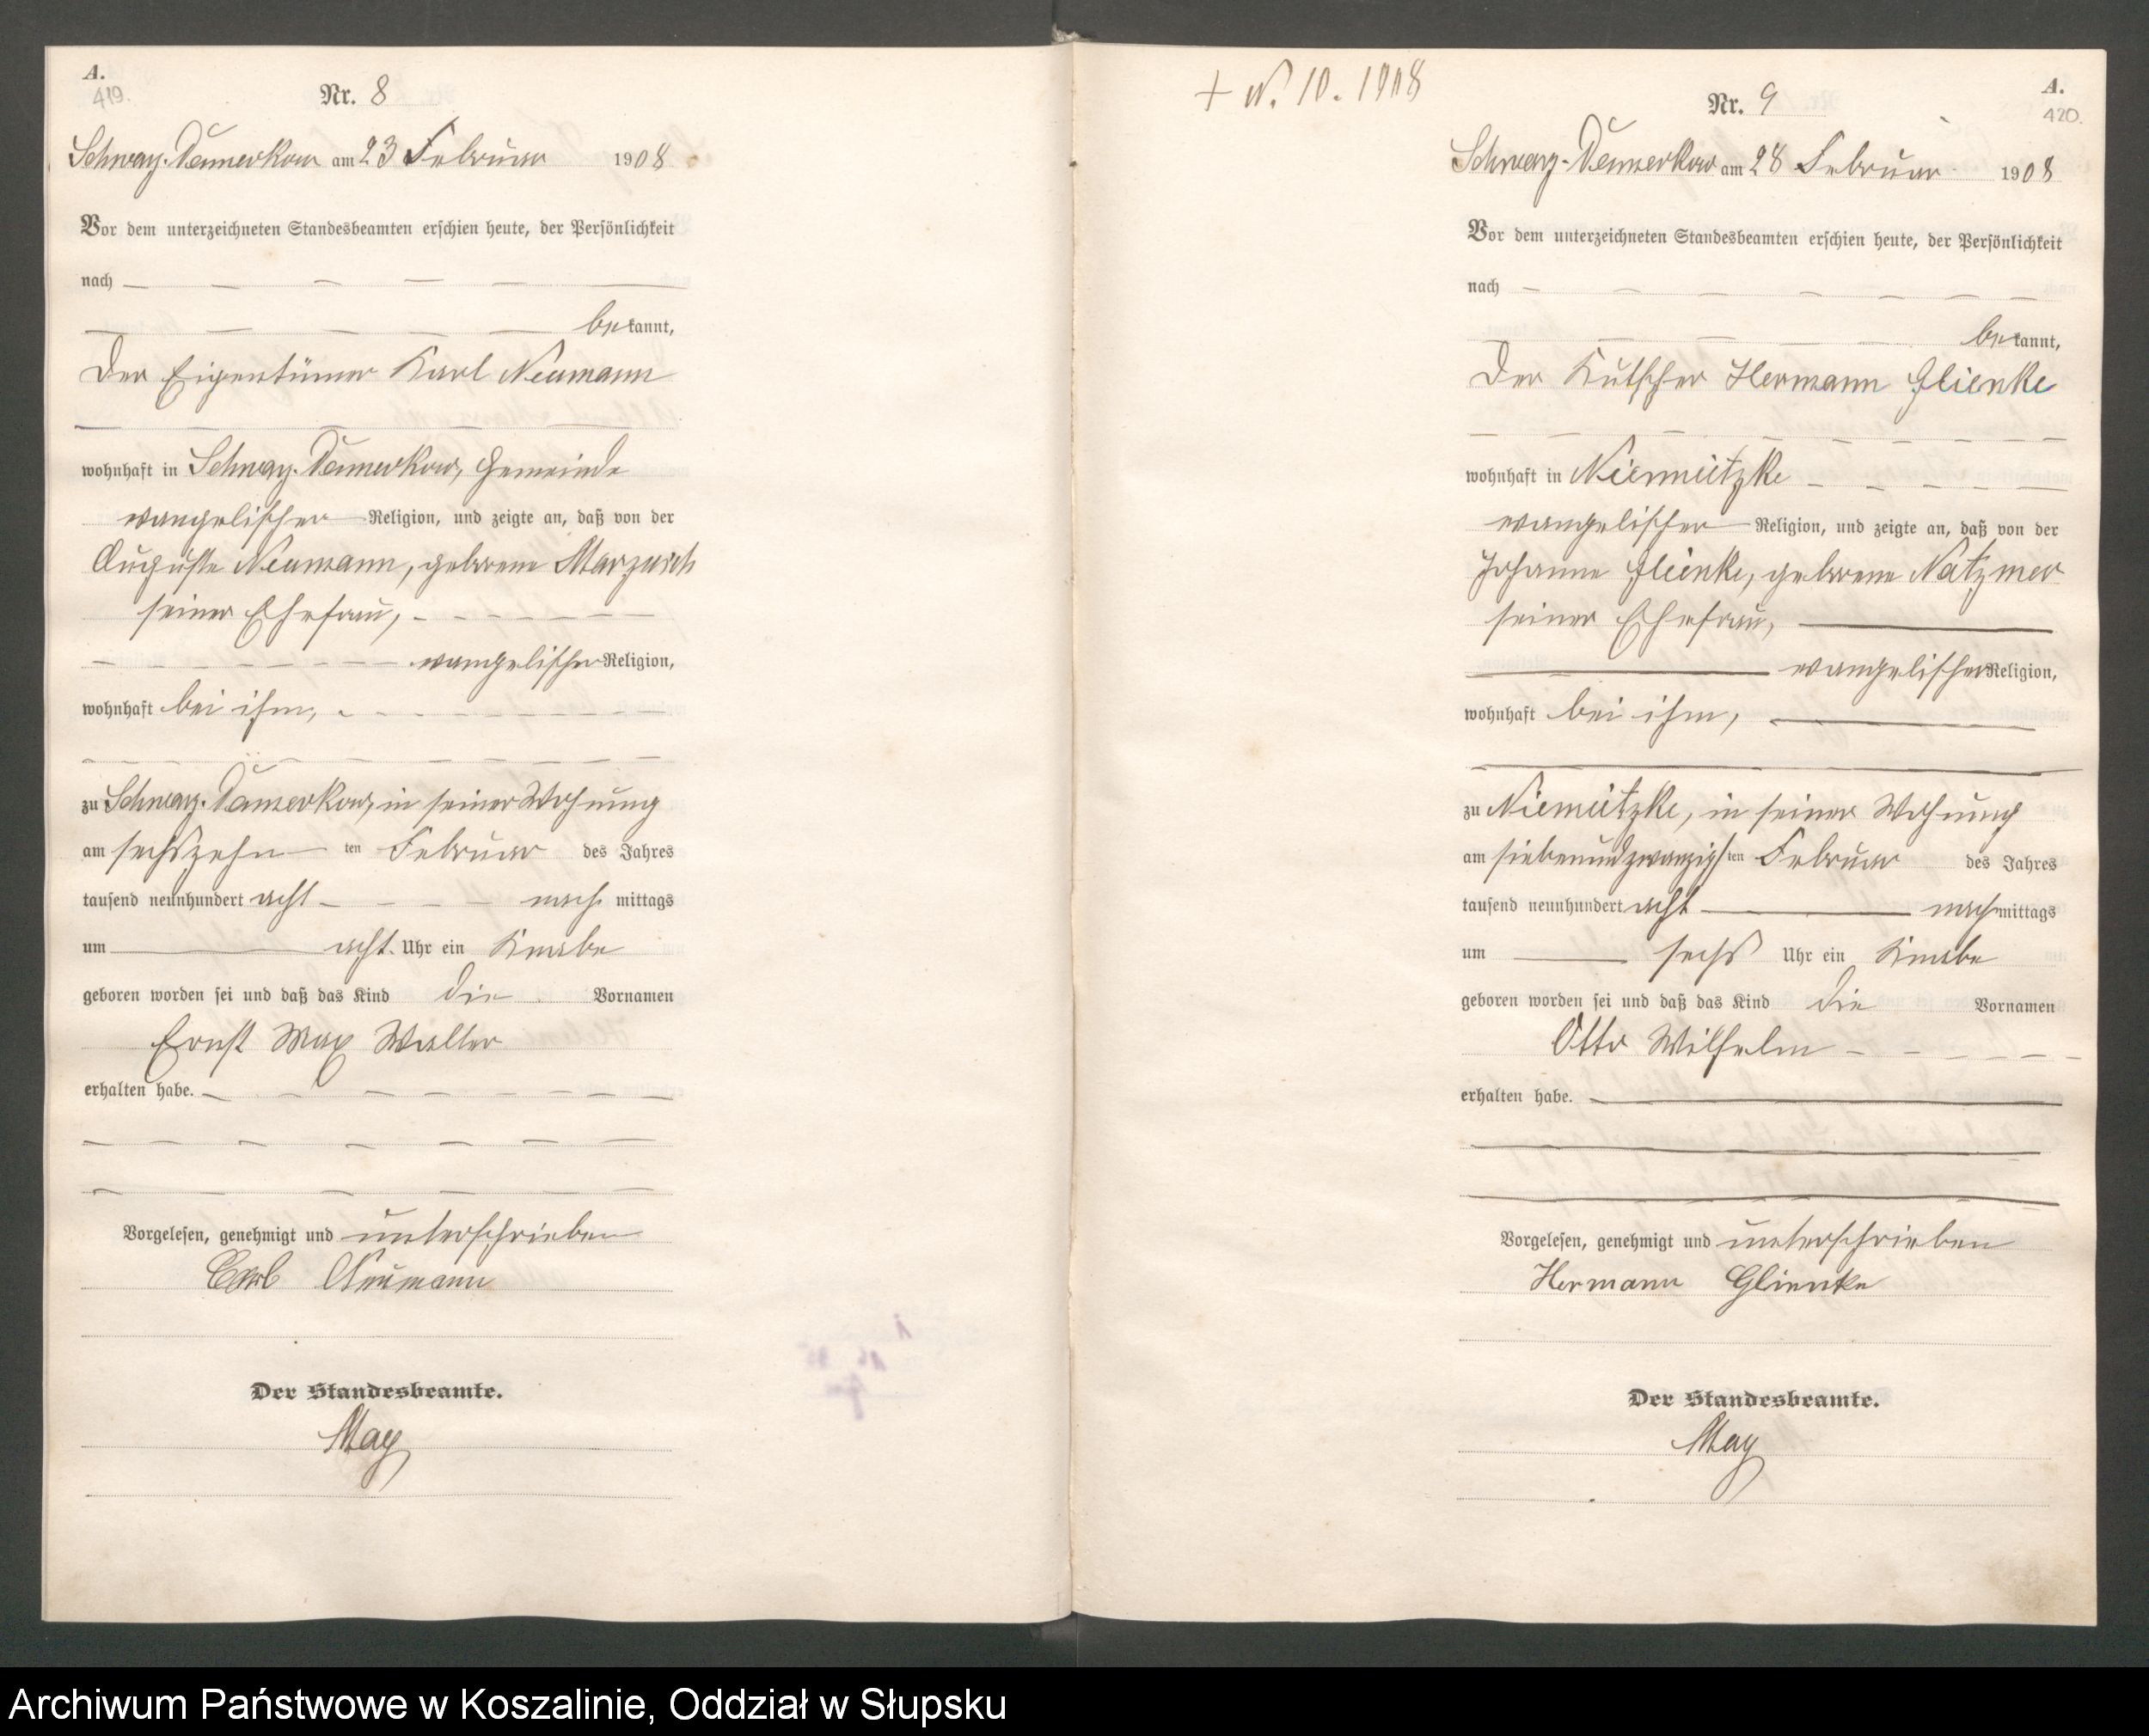 A.
419.
Nr. 8
Schwarz-Damerkow am 23 Februar 1908
Vor dem unterzeichneten Standesbeamten erschien heute, der Persönlichkeit
nach
bekannt,
der Eigentümer Karl Neumann
wohnhaft in Schwarz-Damerkow, Gemeinde
evangelischer Religion, und zeigte an, daß von der
Auguste Neumann, geborene Marzusch
seiner Ehefrau,
evangelischer Religion,
wohnhaft bei ihm,
zu Schwarz-Damerkow, in seiner Wohnung
am sechszehn ten Februar des Jahres
tausend neunhundert acht nach mittags
um acht Uhr ein Knabe
geboren worden sei und daß das Kind die Vornamen
Ernst Max Walter
erhalten habe.
Vorgelesen, genehmigt und unterschrieben
Carl Neumann
Der Standesbeamte.
May
+ N. 10. 1908
A.
420.
Nr. 9
Schwarz-Damerkow am 28 Februar 1908
Vor dem unterzeichneten Standesbeamten erschien heute, der Persönlichkeit
nach
bekannt,
der Kutscher Hermann Glienke
wohnhaft in Niemietzke
evangelischer Religion, und zeigte an, daß von der
Johanne Glienke, geborene Natzmer
seiner Ehefrau,
evangelischer Religion,
wohnhaft bei ihm,
zu Niemietzke, in seiner Wohnung
am siebenundzwanzigsten Februar des Jahres
tausend neunhundert acht nachmittags
um sechs Uhr ein Knabe
geboren worden sei und daß das Kind die Vornamen
Otto Wilhelm
erhalten habe.
Vorgelesen, genehmigt und unterschrieben
Hermann Glienke
Der Standesbeamte.
May
Archiwum Państwowe w Koszalinie, Oddział w Słupsku